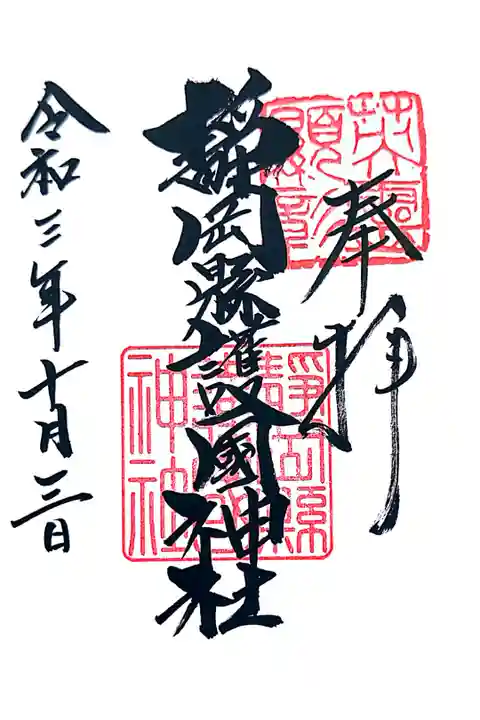 奉拝
靜岡縣護國神社
令和三年十月三日
靜岡縣護國神社